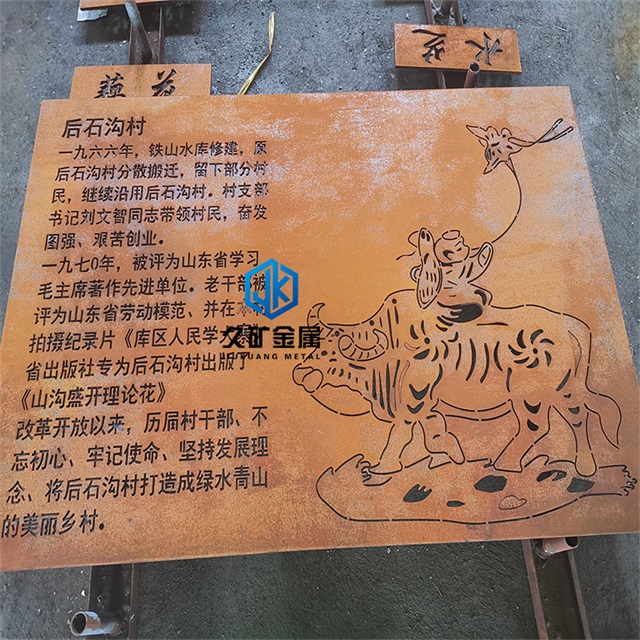 后石沟村
一九六六年，铁山水库修建，原
后石沟村分散搬迁，留下部分村
民，继续沿用后石沟村。村支部
书记刘文智同志带领村民，奋发
图强、艰苦创业。
一九七0年，被评为山东省学习
毛主席著作先进单位。老干部被
评为山东省劳动模范、并在本
拍摄纪录片《库区人民学
省出版社专为后石沟村出版了
《山沟盛开理论花》
改革开放以来，历届村干部、不
忘初心、牢记使命、坚持发展理
念、将后石沟村打造成绿水青山
的美丽乡村。
久矿金属
KUANG METAL